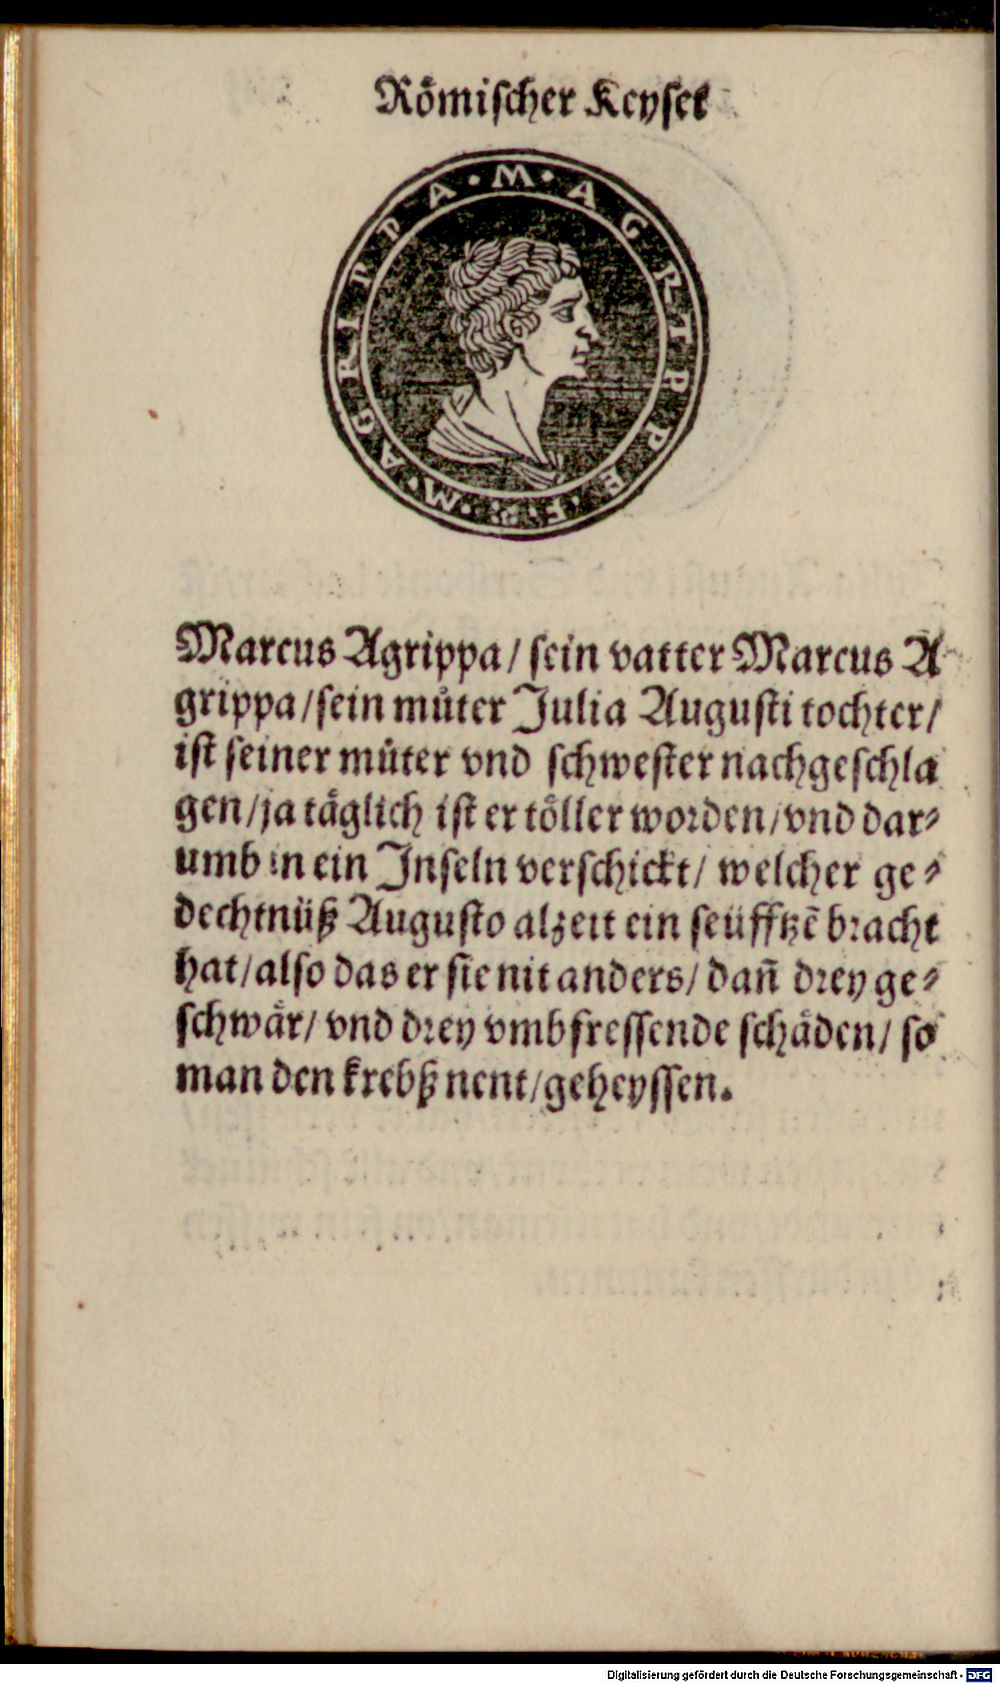 Roͤmischer Keyser
M · AGRIPPE · F · M · AGRIPPA ·
Marcus Agrippa / sein vatter Marcus A
grippa / sein můter Julia Augusti tochter /
ist seiner můter vnd schwester nachgeschla
gen / ja taͤglich ist er toͤller worden / vnd dar⸗
umb in ein Inseln verschickt / welcher ge⸗
dechtnüß Augusto alzeit ein seüfftzē bracht
hat / also das er sie nit anders / dañ drey ge⸗
schwaͤr / vnd drey vmbfressende schaͤden / so
man den krebß nent / geheyssen.
Digitalisierung gefördert durch die Deutsche Forschungsgemeinschaft - DFG